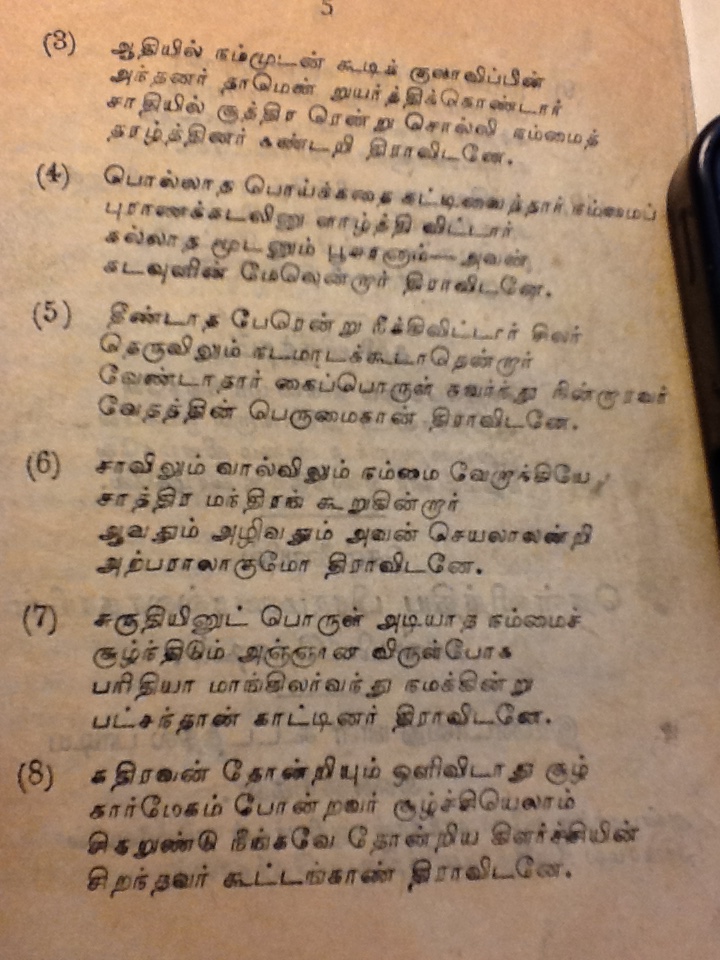 5
(3) ஆதியில் நம்முடன் கூடிக் குலாவிப்பின்
அந்தணர் தாமென் றுயர்த்திக்கொண்டார்
சாதியில் சூத்திர ரென்று சொல்லி நம்மைத்
தாழ்த்தினர் கண்டறி திராவிடனே.
(4) பொல்லாத பொய்க்கதை கட்டிவைத்தார் நம்மைப்
புராணக்கடலினு ளாழ்த்தி விட்டார்
கல்லாத மூடனும் பூசுரனாம்—அவன்
கடவுளின் மேலென்றார் திராவிடனே.
(5) தீண்டாத பேரென்று நீக்கிவிட்டார் சிலர்
தெருவிலும் நடமாடக்கூடாதென்றார்
வேண்டாதார் கைப்பொருள் கவர்ந்து நின்றாரவர்
வேதத்தின் பெருமைகாண் திராவிடனே.
(6) சாவிலும் வால்விலும் நம்மை வேறாக்கியே
சாத்திர மந்திரங் கூறுகின்றார்
ஆவதும் அழிவதும் அவன் செயலாலன்றி
அற்பராலாகுமோ திராவிடனே.
(7) சுருதியினுட் பொருள் அடியாத நம்மைச்
சூழ்ந்திடும் அஞ்ஞான விருள்போக
பரிதியா மாங்கிலர்வந்து நமக்கின்று
பட்சந்தான் காட்டினர் திராவிடனே.
(8) கதிரவன் தோன்றியும் ஒளிவிடாது சூழ்
கார்மேகம் போன்றவர் சூழ்ச்சியெலாம்
சிதறுண்டு நீங்கவே தோன்றிய கிளர்ச்சியின்
சிறந்தவர் கூட்டங்காண் திராவிடனே.